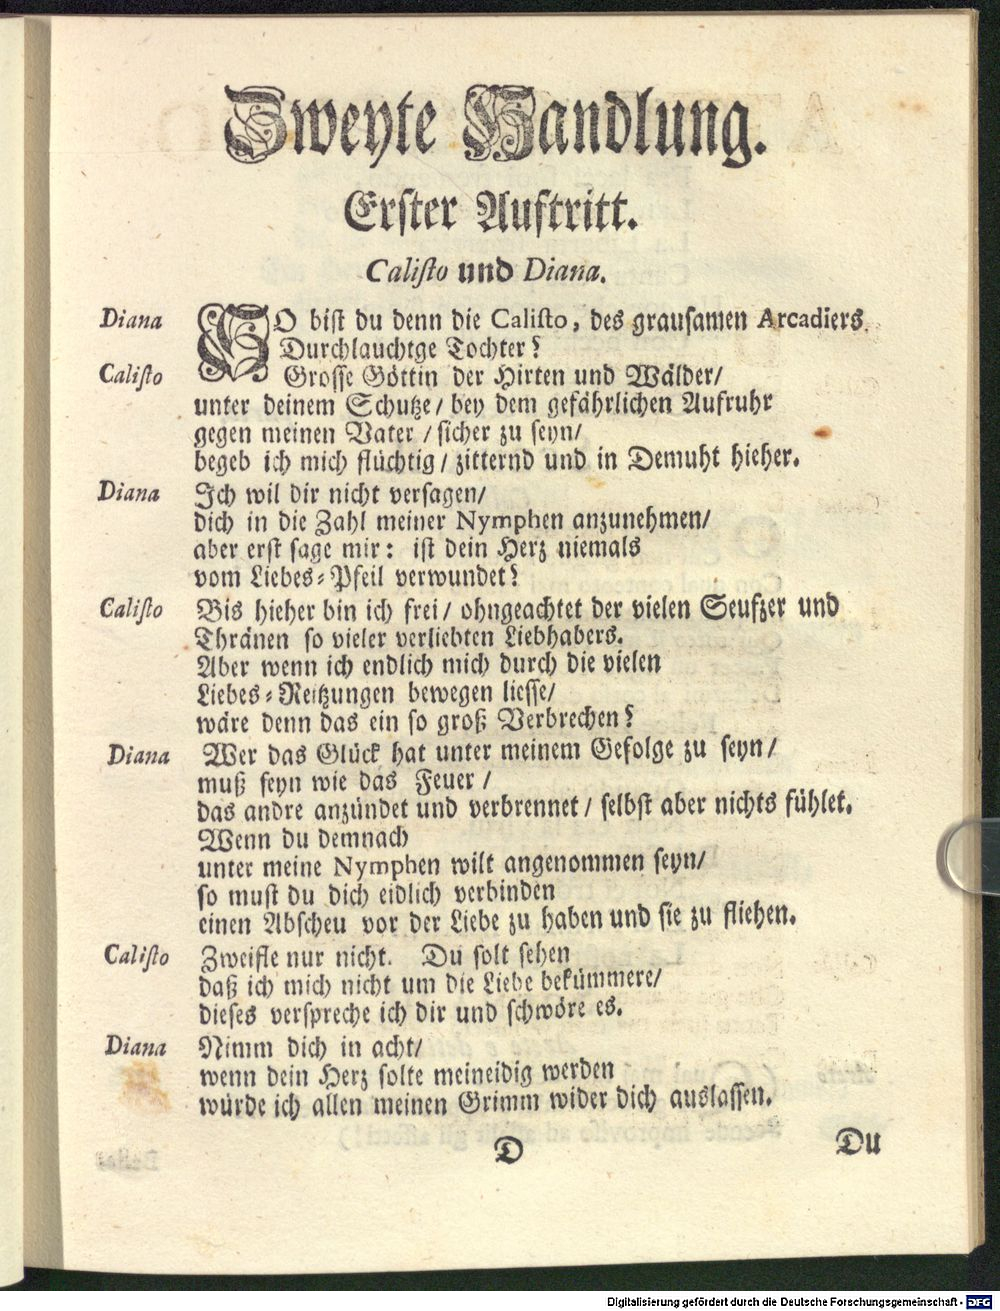 Zweyte Handlung.
Erster Auftritt.
Calisto und Diana.
Diana SO bist du denn die Calisto, des grausamen Arcadiers
Durchlauchtge Tochter?
Calisto Grosse Göttin der Hirten und Wälder/
unter deinem Schutze/ bey dem gefährlichen Aufruhr
gegen meinen Vater / sicher zu seyn/
begeb ich mich flüchtig/ zitternd und in Demuht hieher.
Diana Ich wil dir nicht versagen/
dich in die Zahl meiner Nymphen anzunehmen/
aber erst sage mir: ist dein Herz niemals
vom Liebes-Pfeil verwundet?
Calisto Bis hieher bin ich frei/ ohngeachtet der vielen Seufzer und
Thränen so vieler verliebten Liebhabers.
Aber wenn ich endlich mich durch die vielen
Liebes-Reitzungen bewegen liesse/
wäre denn das ein so groß Verbrechen?
Diana Wer das Glück hat unter meinem Gefolge zu seyn/
muß seyn wie das Feuer /
das andre anzündet und verbrennet/ selbst aber nichts fühlet.
Wenn du demnach
unter meine Nymphen wilt angenommen seyn/
so must du dich eidlich verbinden
einen Abscheu vor der Liebe zu haben und sie zu fliehen.
Calisto Zweifle nur nicht. Du solt sehen
daß ich mich nicht um die Liebe bekümmere/
dieses verspreche ich dir und schwöre es.
Diana Nimm dich in acht/
wenn dein Herz solte meineidig werden
würde ich allen meinen Grimm wider dich auslassen.
D Du
Digitalisierung gefördert durch die Deutsche Forschungsgemeinschaft - DFG